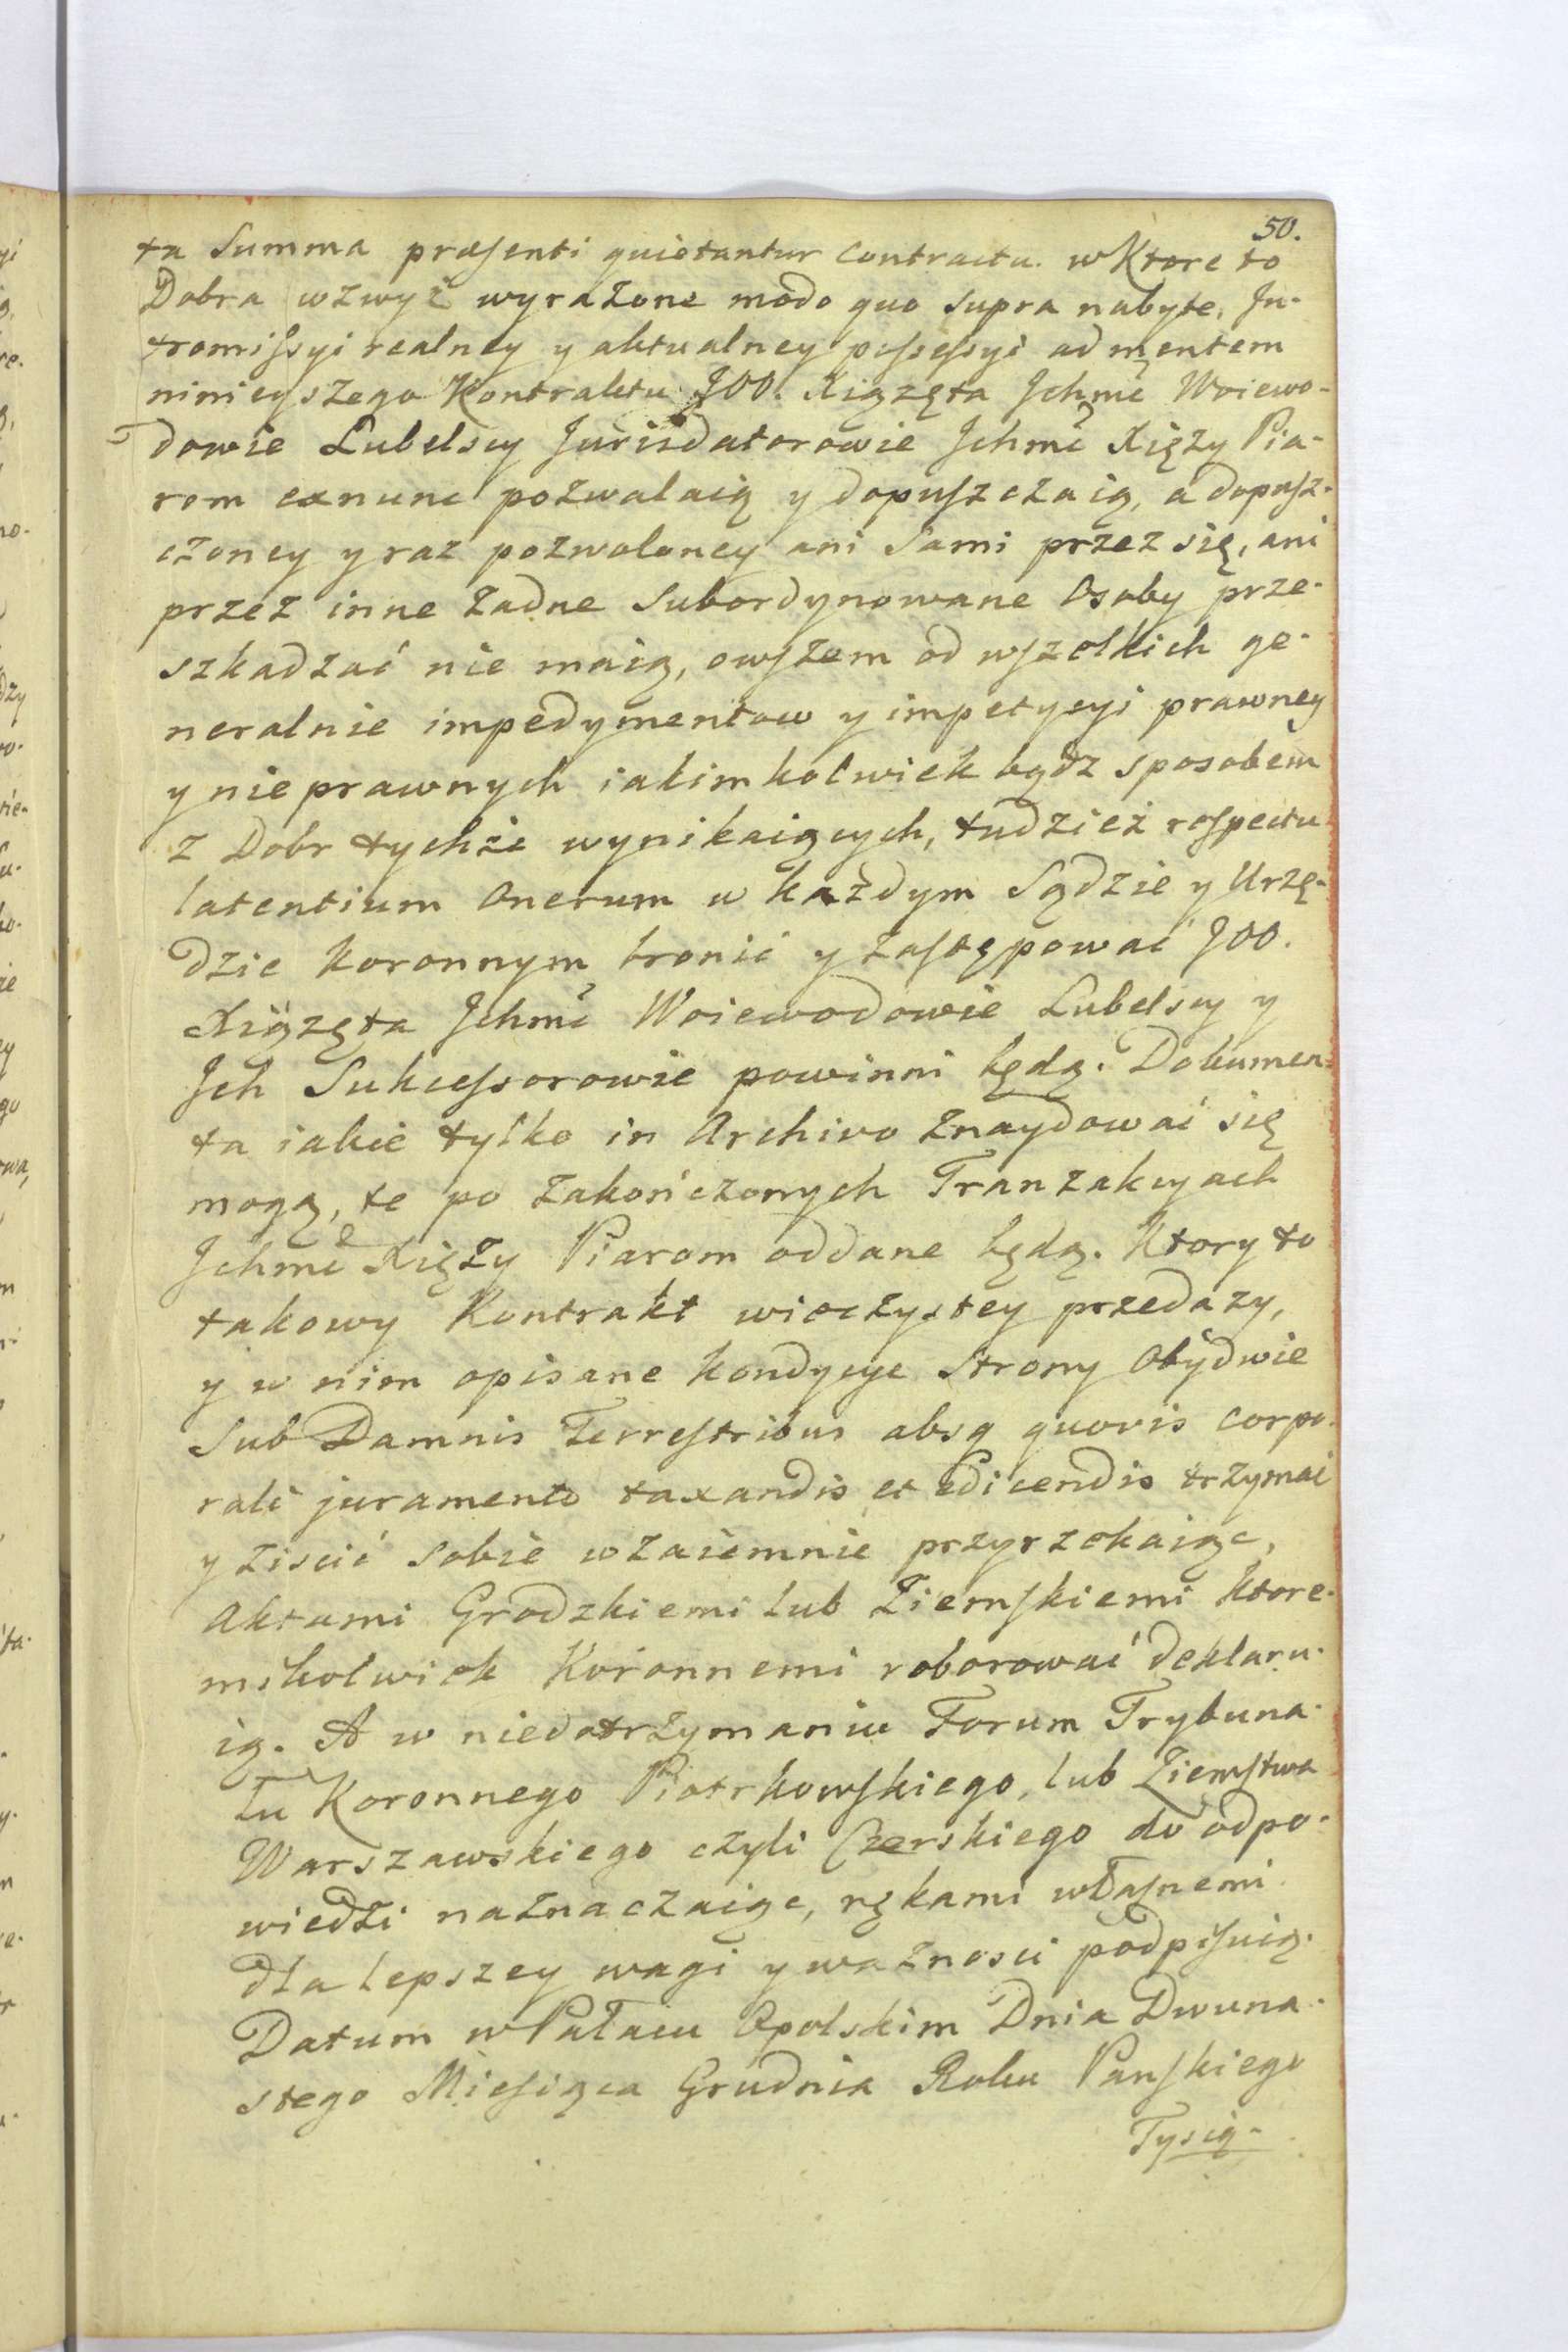 50.
ta Summa præsenti quietantur Contractu. w Ktore to
Dobra wzwyż wyrażone modo quo supra nabyte, In-
tromissyi realney y aktualney possessyi ad mentem
ninieyszego Kontraktu JOO. Xiążęta Jchmć Woiewo-
dowie Lubelscy Jurisdatorowie Jchmć Xięży Pia-
rom exnunc pozwalaią y dopuszczaią, a dopusz-
czoney y raz pozwoloney ani Sami przez się, ani
przez inne żadne Subordynowane Osoby prze-
szkadzać nie maią, owszem od wszelkich ge-
neralnie impedymentow y impetycyi prawney
y nieprawnych iakimkolwiek bądz sposobem
z Dobr tychże wynikaiących, tudzież respectu
latentium Onerum w każdym Sądzie y Urzę-
dzie koronnym bronić y zastępować JOO.
Xiążęta Jchmć Woiewodowie Lubelscy y
Jch Sukcessorowie powinni będą. Dokumen-
ta iakie tylko in Archivo znaydować się
mogą, te po zakończonych Tranzakcyach
Jchmć Xięży Piarom oddane będą. Ktory to
takowy Kontrakt wieczystey przedaży,
y w nim opisane kondycye Strony Obydwie
Sub Damnis Terrestribus absq quovis corpo-
rali juramento taxandis et edicendis trzymać
y ziscić sobie wzaiemnie przyrzekaiąc,
Aktami Grodzkiemi lub Ziemskiemi ktore-
mikolwiek Koronnemi roborować deklaru-
ią. A w niedotrzymaniu Forum Trybuna-
łu Koronnego Piotrkowskiego, lub Ziemstwa
Warszawskiego czyli Czerskiego do odpo-
wiedzi naznaczaiąc, rękami własnemi
dla lepszey wagi y ważnosci podpisuią.
Datum w Pałacu Opolskim Dnia Dwuna-
stego Miesiąca Grudnia Roku Panskiego
Tysią-